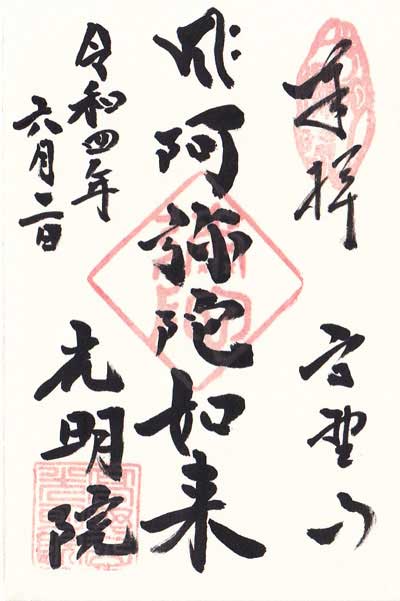 奉拝
高野山
阿弥陀如来
令和四年
六月二日
光明院